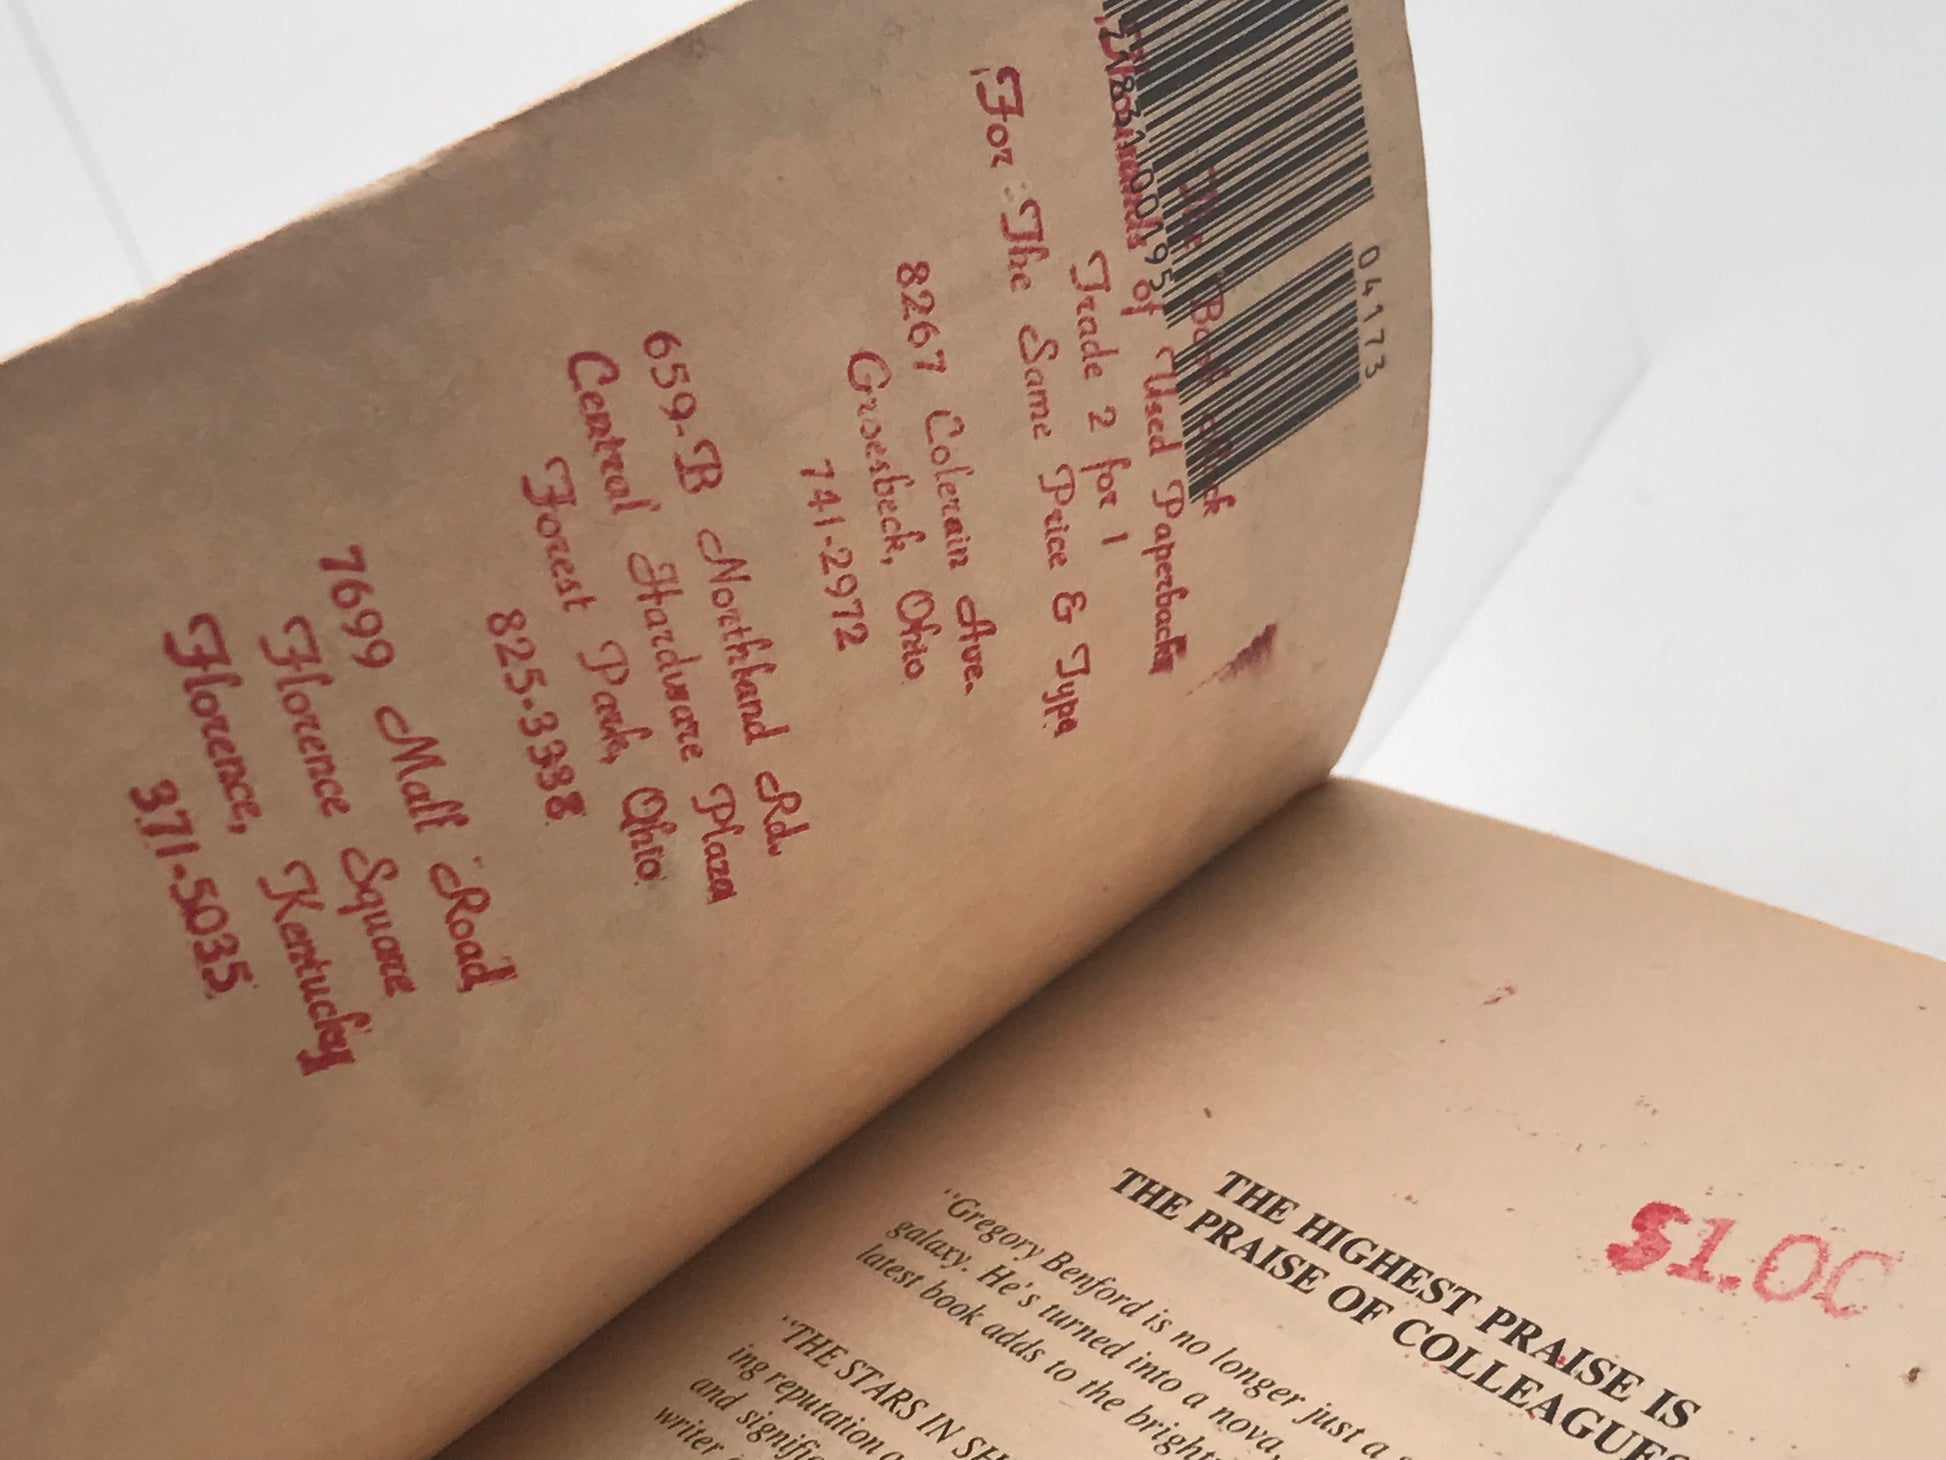 04173
The Book Rack
Thousands of Used Paperbacks
Trade 2 for 1
For The Same Price & Type
8267 Colerain Ave.
Groesbeck, Ohio
741-2972
659-B Northland Rd.
Central Hardware Plaza
Forest Park, Ohio
825-3338
7699 Mall Road
Florence Square
Florence, Kentucky
371-5035
$1.00
THE HIGHEST PRAISE IS
THE PRAISE OF COLLEAGUES
"Gregory Benford is no longer just a
galaxy. He's turned into a nova,
latest book adds to the bright
"THE STARS IN SH
ing reputation
and signifi
writer